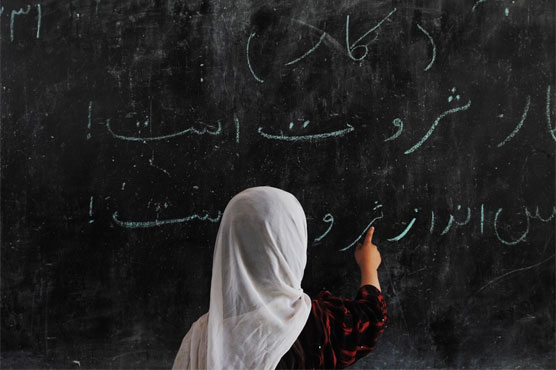 ( کار )
ار ثروت است !
پس انداز ثروت است !